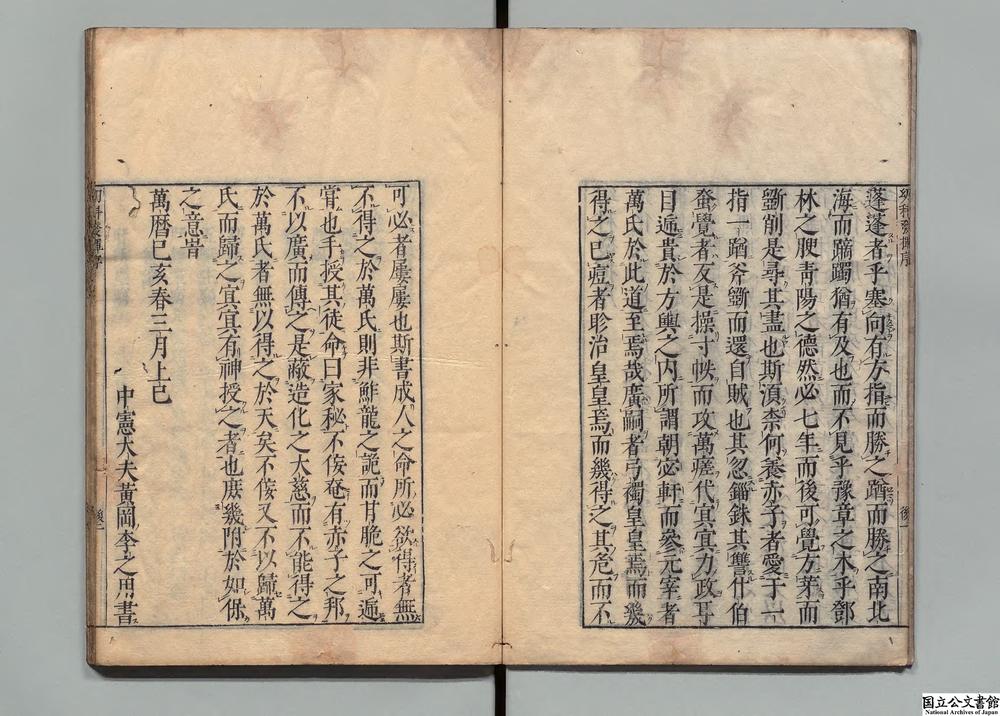 蓬蓬者乎塞向有方指而勝之蹈而勝之南北
海而蹢躅猶有及也而不見乎豫章之木乎鄧
林之腴靑陽之德然必七年而後可覺方苐而
斵削是尋其盡也斯湏柰何養赤子者愛于一
指一蹈斧斵而還自賊也其忽錙銖其讐什伯
蚤覺者反是操寸帙而攻萬瘥代冥冥力政耳
目逓貴於方輿之内所謂朝宓軒而叅元宰者
萬氏於此道至焉哉廣嗣者弓襡皇皇焉而幾
得之已痘者昣治皇皇焉而幾得之其危而不
可必者屢屢也斯書成人之命所必欲得者無
不得之於萬氏則非鮓龍之詭而甘脆之可逓
甞也手授其徒命曰家秘不侫奄有赤子之邦
不以廣而傳之是蔽造化之大慈而不能得之
於萬氏者無以得之於天矣不侫又不以歸萬
氏而歸之冥冥有神授之者也庻幾附於如保
之意旹
萬曆巳亥春三月上巳
中憲大夫黃岡李之用書
後一
後二
国立公文書館
National Archives of Japan